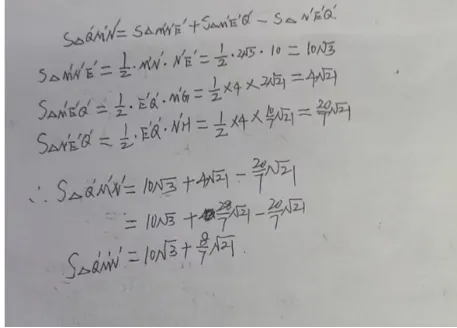 S△Q'M'N' = S△M'N'E' + S△M'E'Q' - S△N'E'Q'
S△M'N'E' = 1/2 · M'N' · N'E' = 1/2 · 2√3 · 10 = 10√3
S△M'E'Q' = 1/2 · E'Q' · M'G = 1/2 × 4 × 2√21 = 4√21
S△N'E'Q' = 1/2 · E'Q' · N'H = 1/2 × 4 × 10/7√21 = 20/7√21
∴ S△Q'M'N' = 10√3 + 4√21 - 20/7√21
= 10√3 + 28/7√21 - 20/7√21
S△Q'M'N' = 10√3 + 8/7√21.